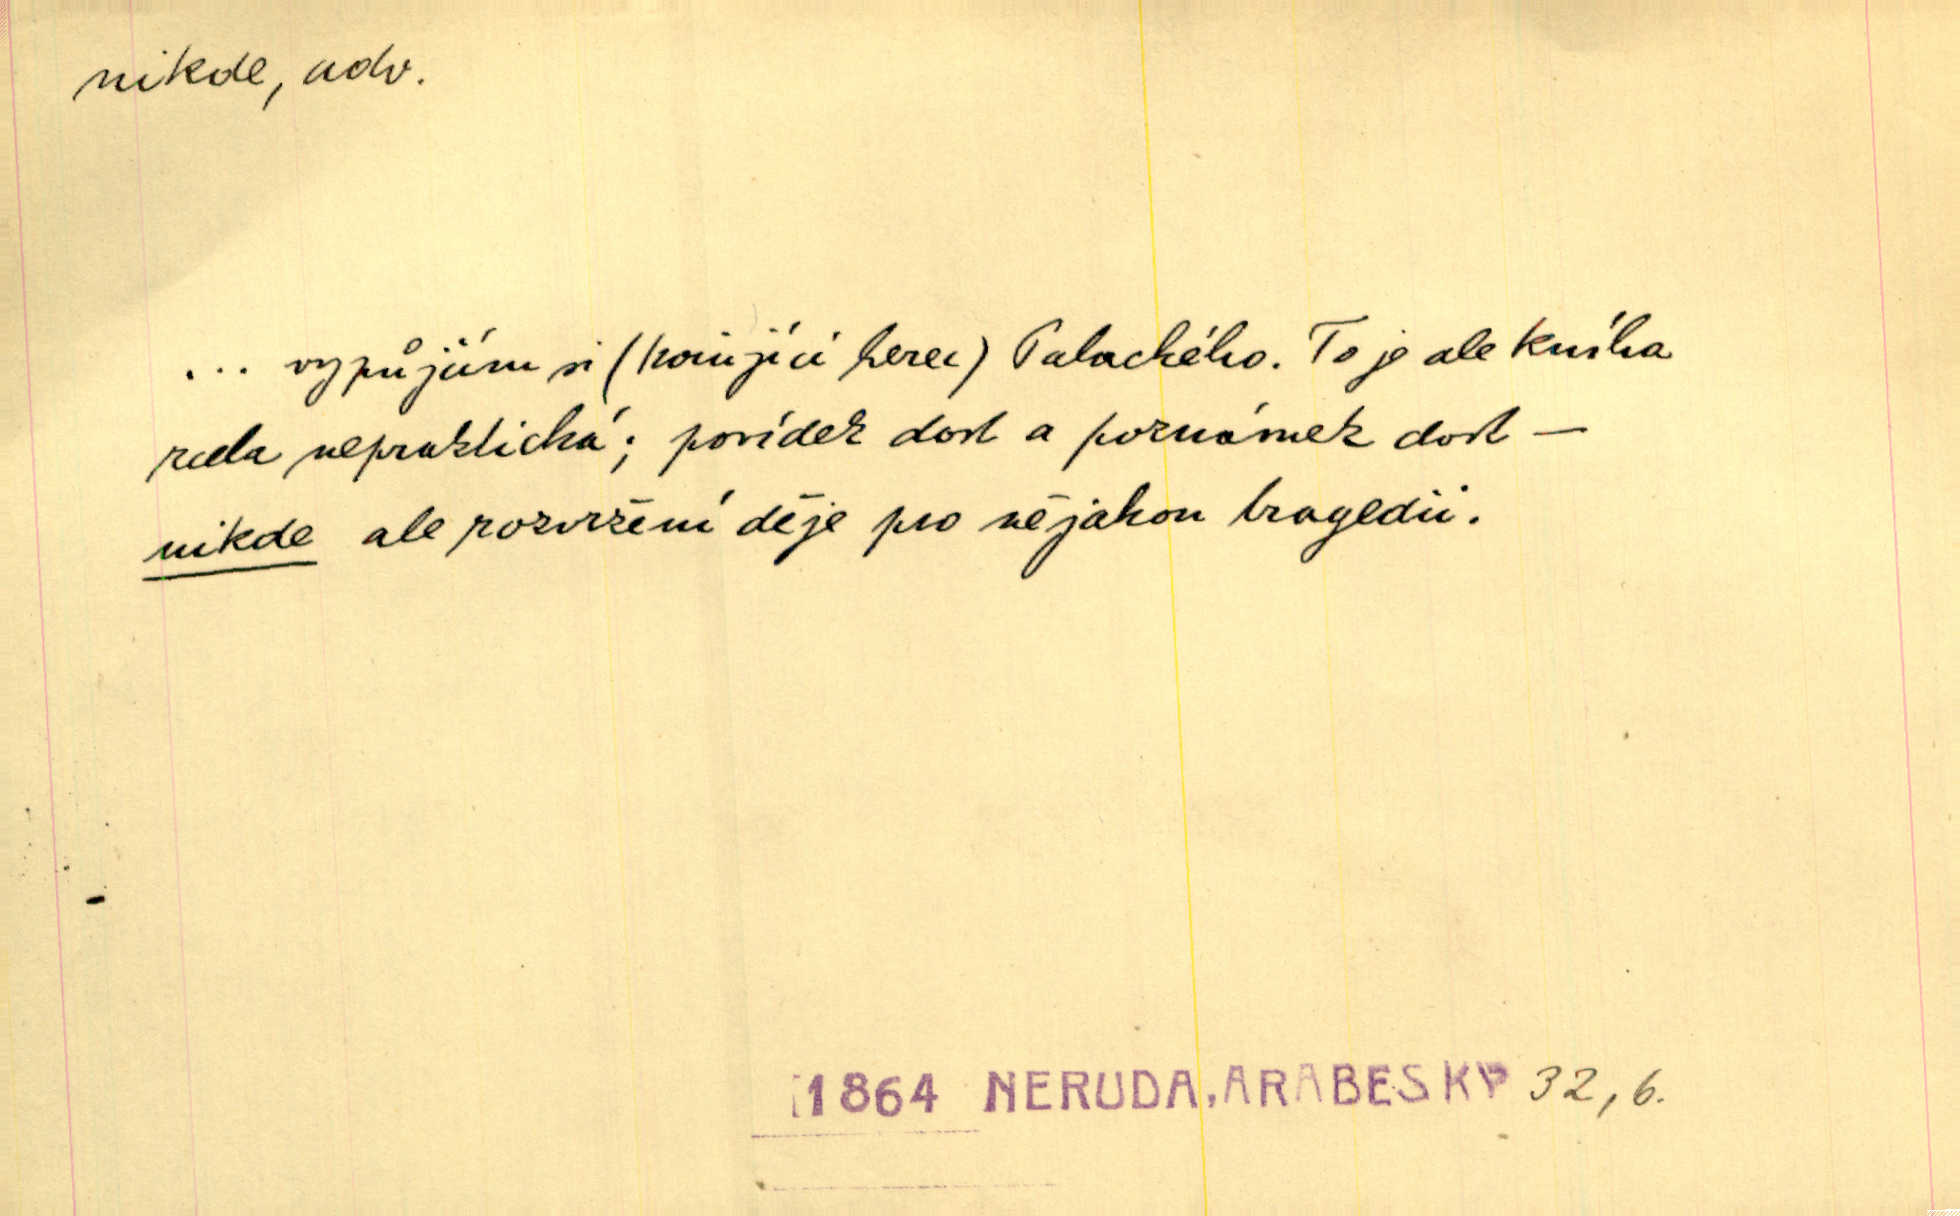 nikde, adv.
... vypůjčím si (kočující herec) Palackého. To je ale kniha
zcela nepraktická; povídek dost a poznámek dost —
nikde ale rozvržení děje pro nějakou tragedii.
1864 NERUDA, ARABESKY 32, 6.